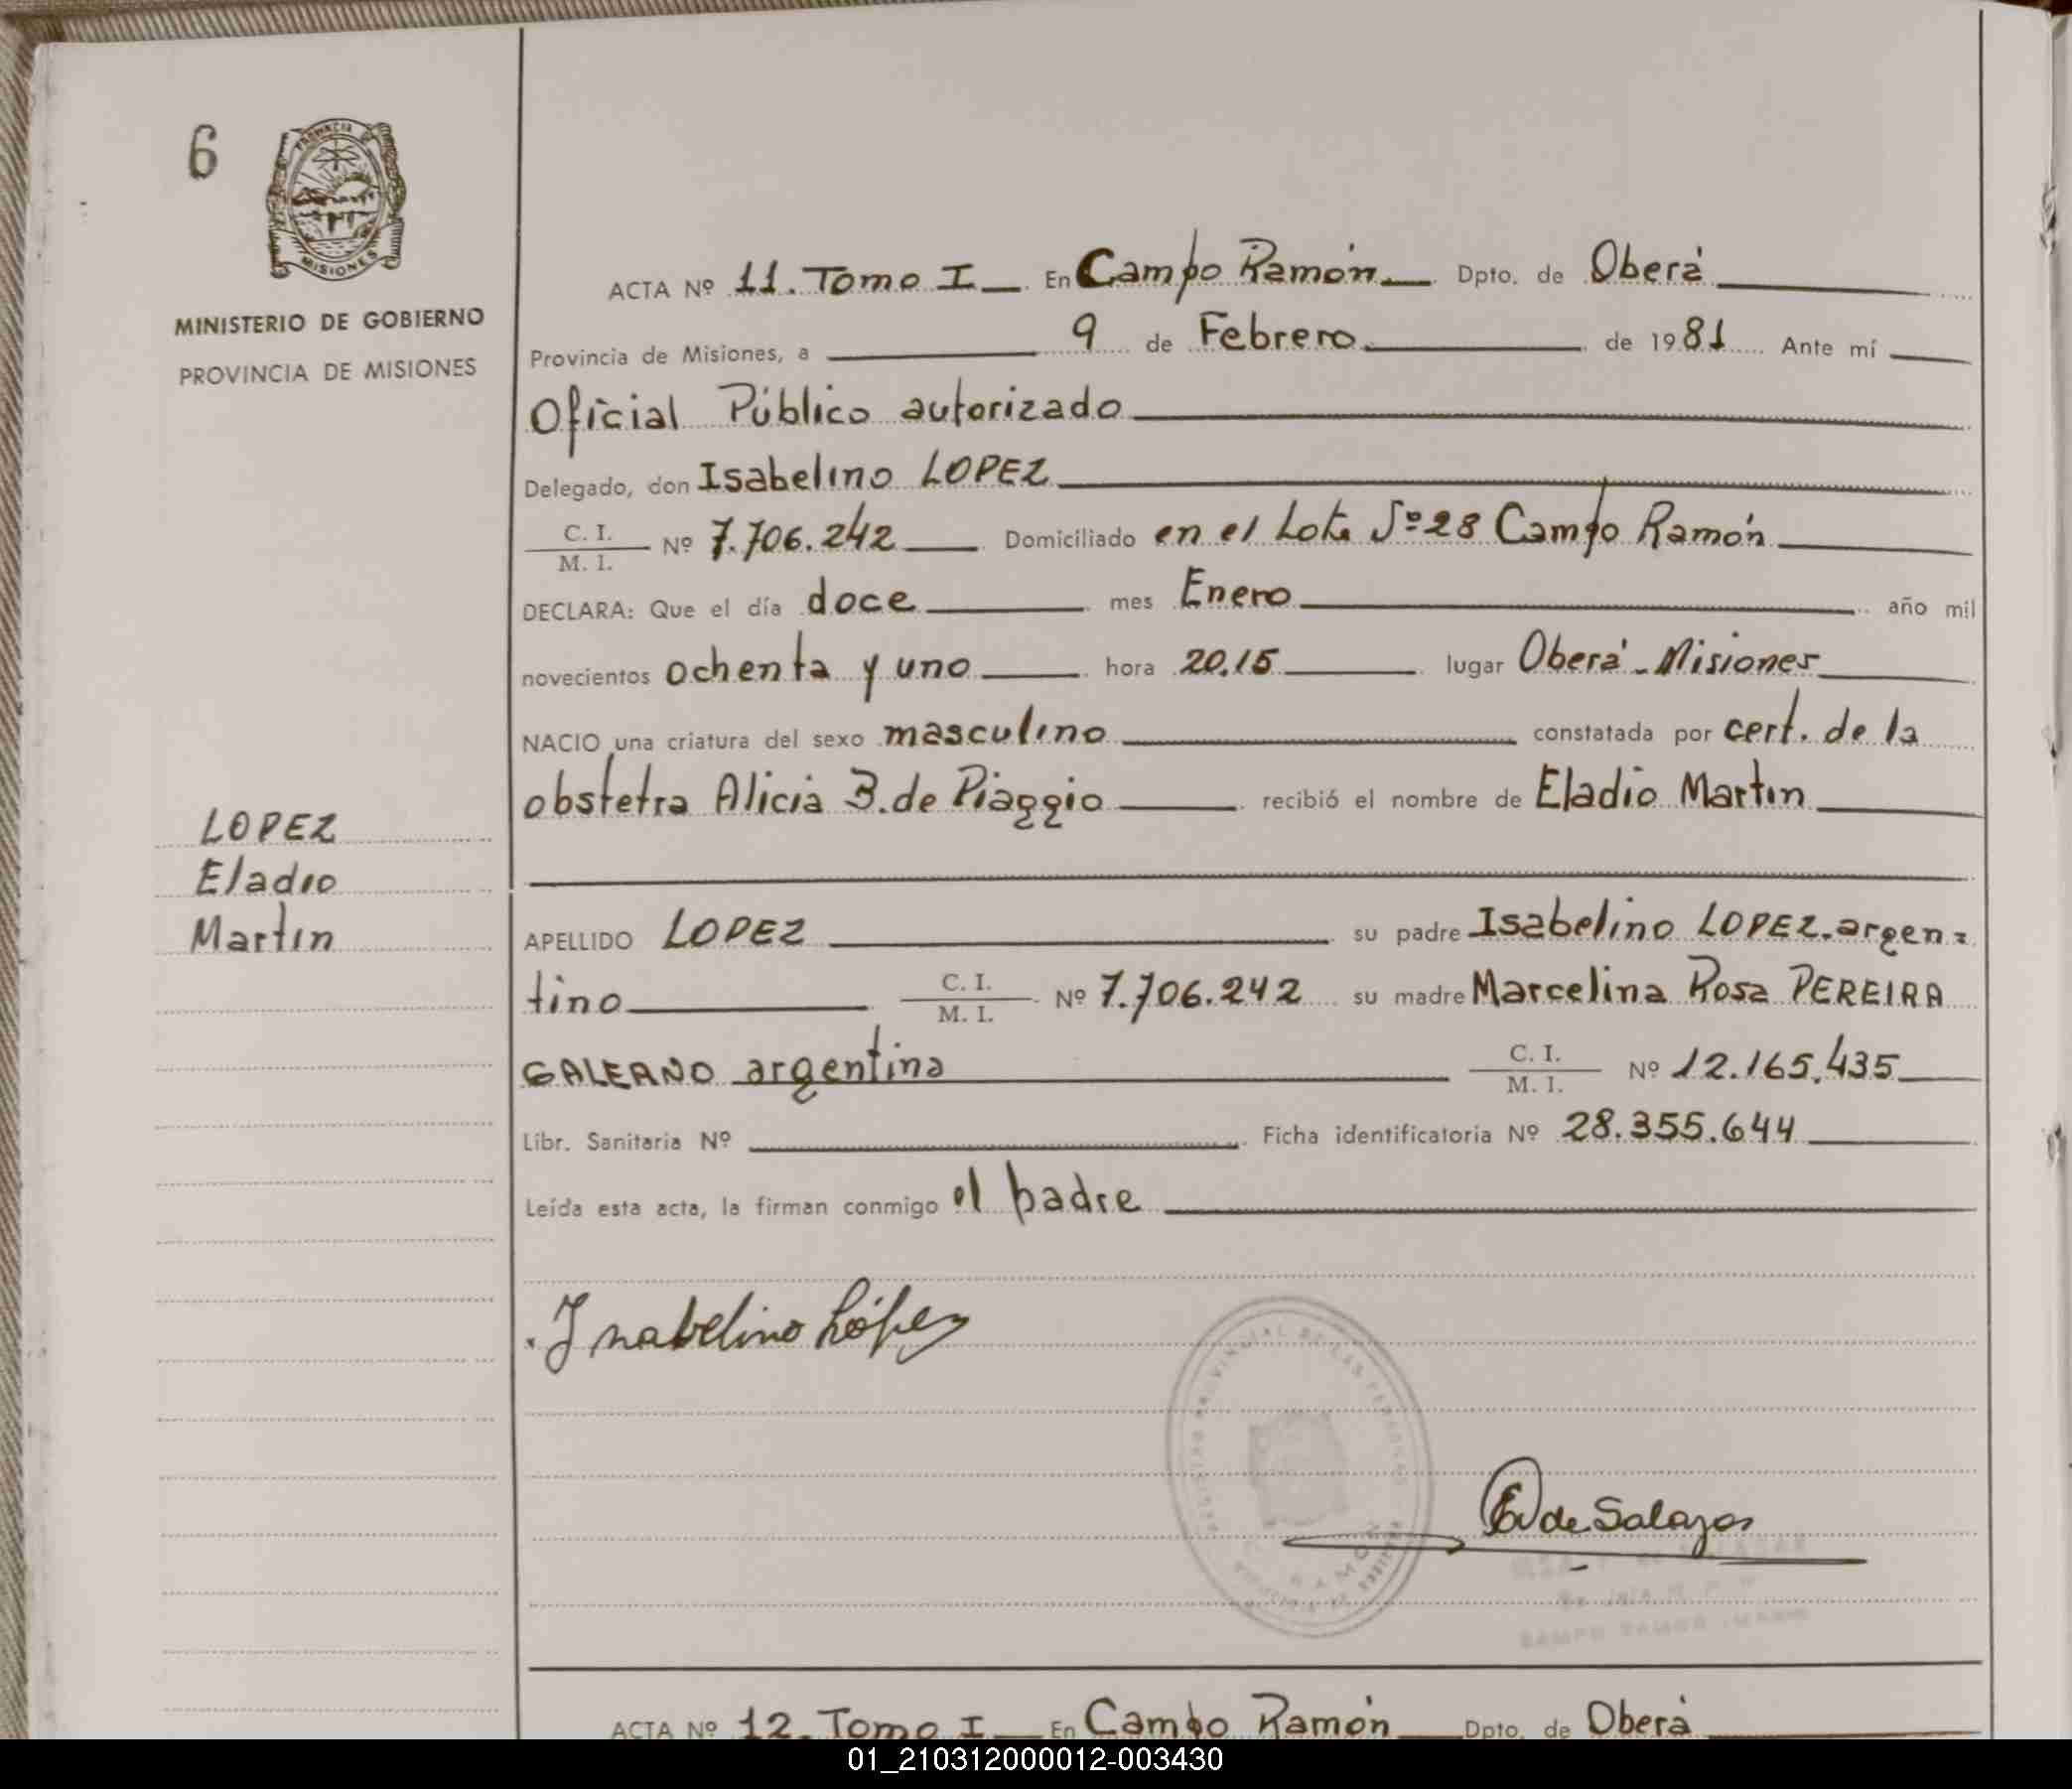 6
PROVINCIA DE
MISIONES
MINISTERIO DE GOBIERNO
PROVINCIA DE MISIONES
LOPEZ
Eladio
Martin
ACTA Nº 11. Tomo I En Campo Ramón Dpto. de Oberá
Provincia de Misiones, a 9 de Febrero de 1981 Ante mí
Oficial Público autorizado
Delegado, don Isabelino LOPEZ
C. I.
M. I. Nº 7.706.242 Domiciliado en el Lote Nº 28 Campo Ramón
DECLARA: Que el día doce mes Enero año mil
novecientos ochenta y uno hora 20.15 lugar Oberá - Misiones
NACIO una criatura del sexo masculino constatada por cert. de la
obstetra Alicia B. de Piaggio recibió el nombre de Eladio Martin
APELLIDO LOPEZ su padre Isabelino LOPEZ. argen=
tino C. I.
M. I. Nº 7.706.242 su madre Marcelina Rosa PEREIRA
GALEANO argentina C. I.
M. I. Nº 12.165.435
Libr. Sanitaria Nº Ficha identificatoria Nº 28.355.644
Leída esta acta, la firman conmigo el padre
Isabelino López
de Salazar
DE SALAZAR
CAMPO RAMON
ACTA Nº 12. Tomo I En Campo Ramón Dpto. de Oberá
01_210312000012-003430